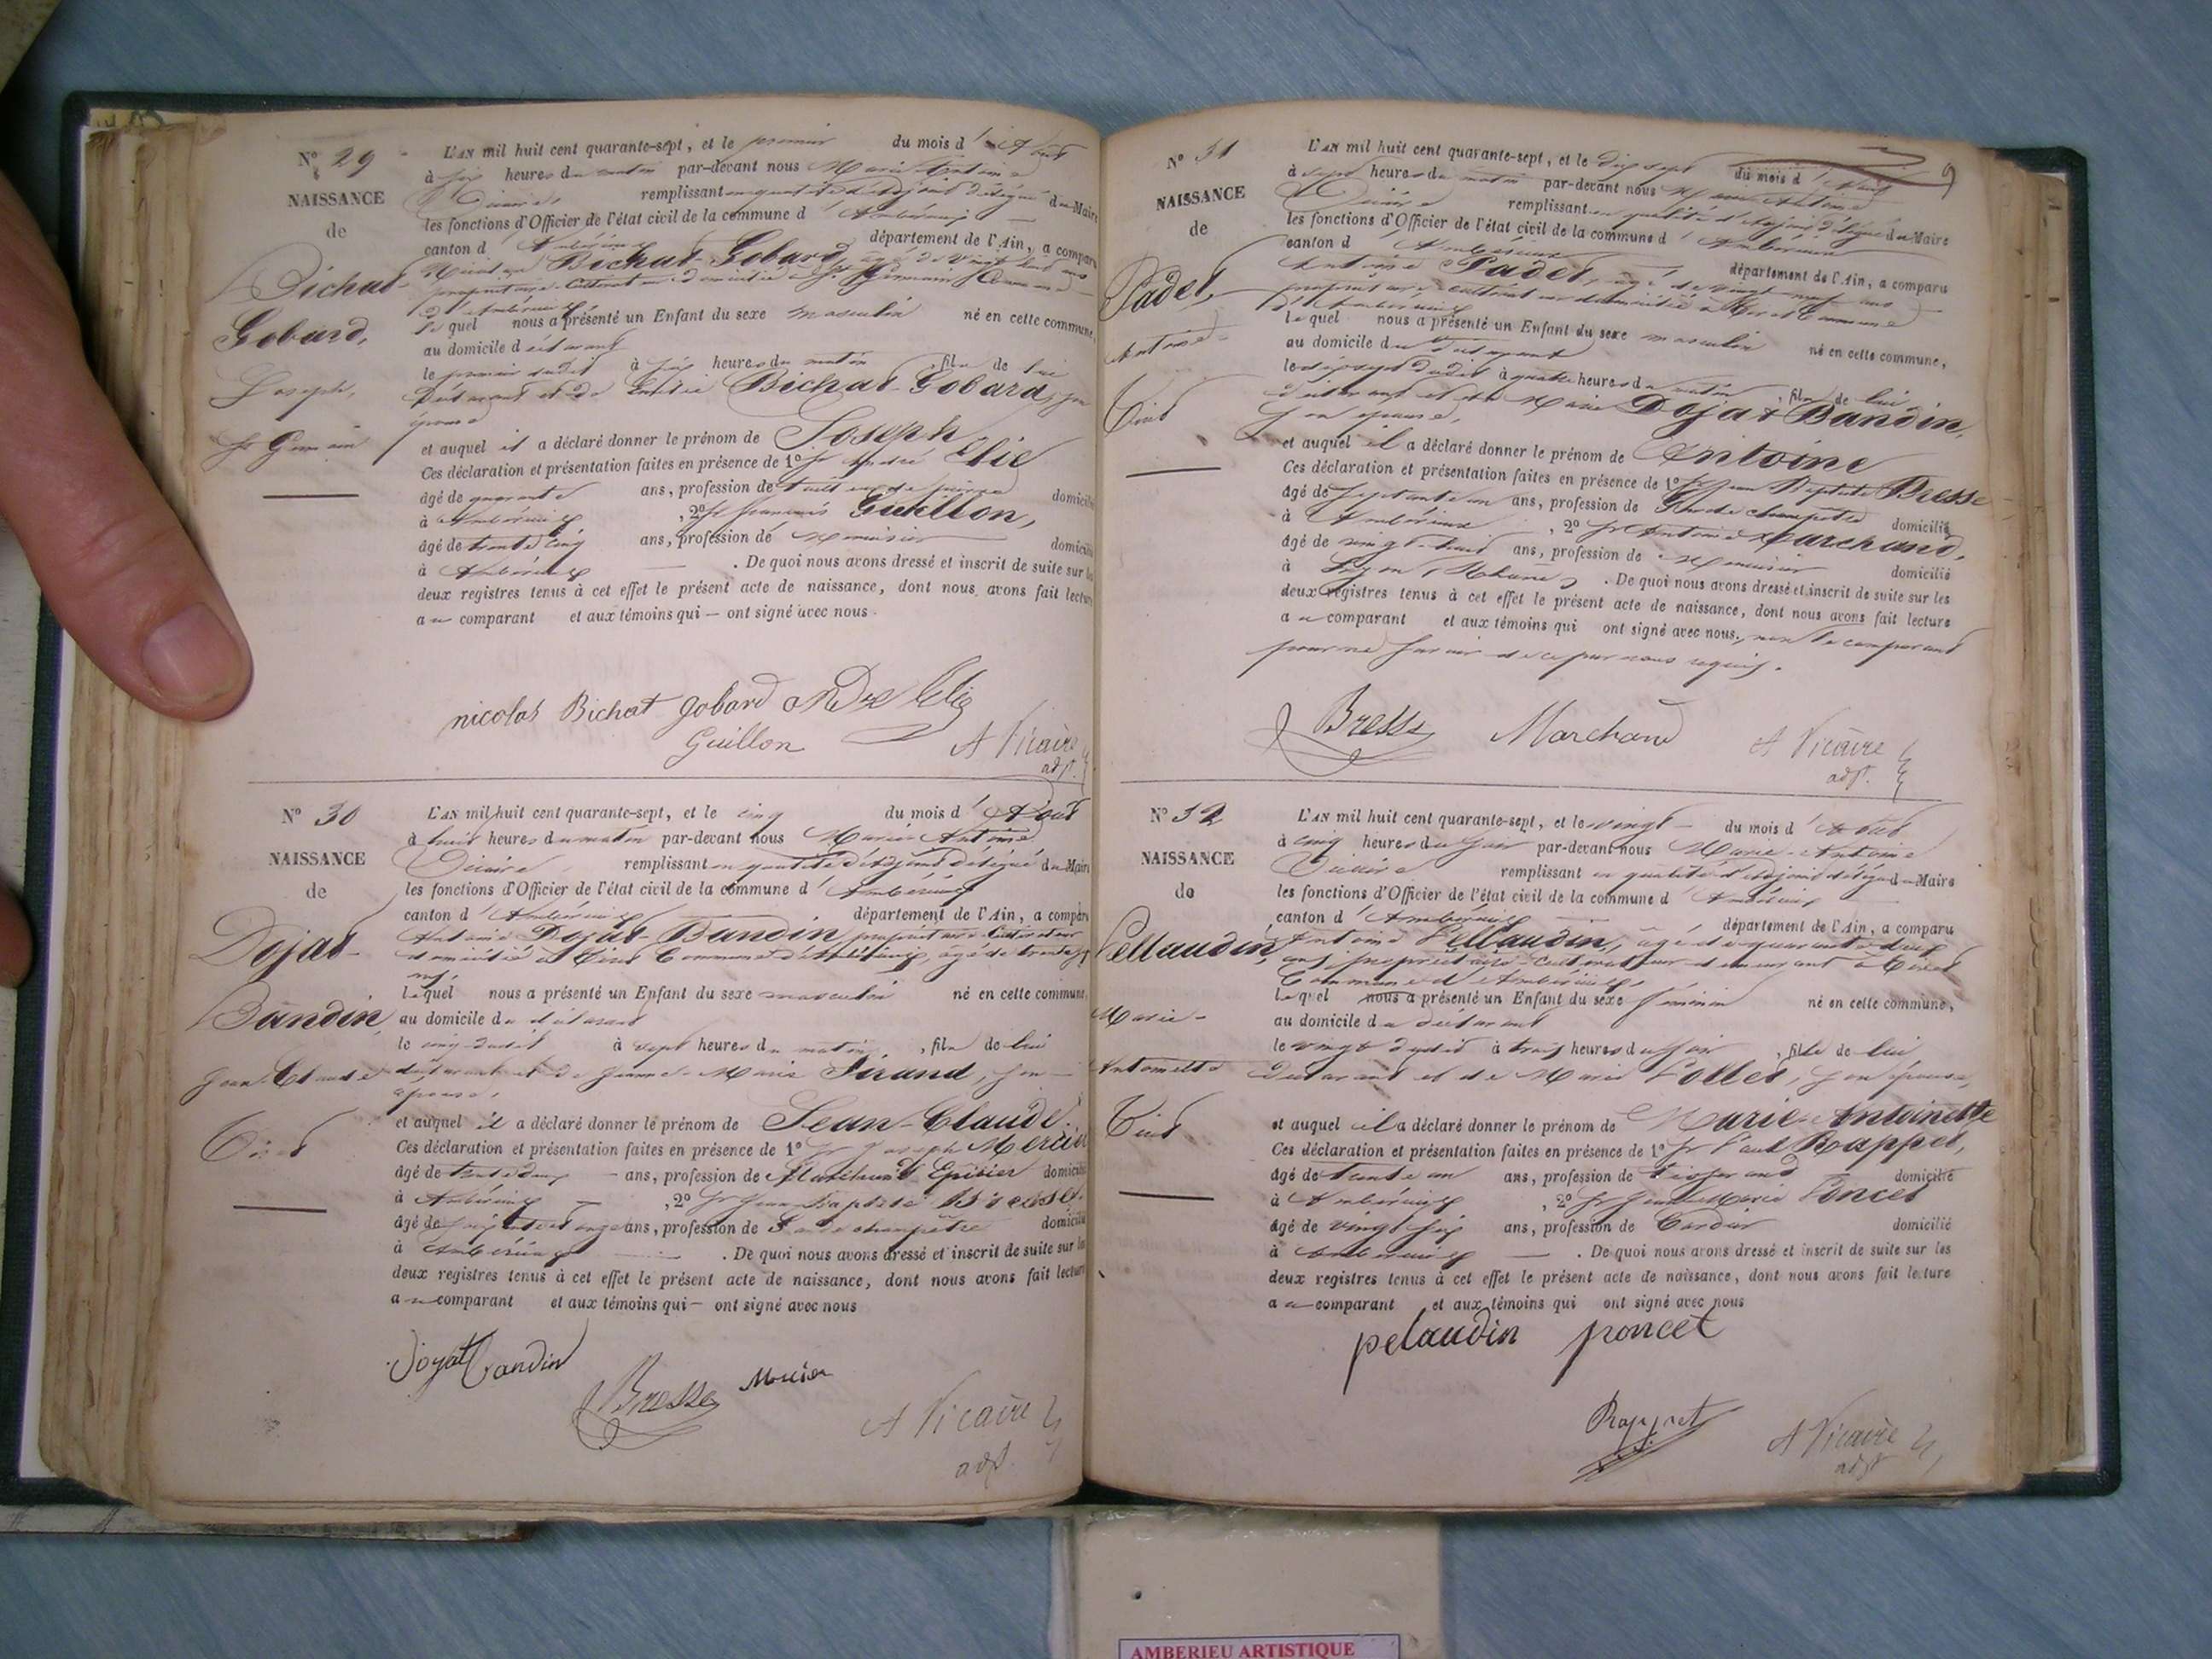 N° 29
NAISSANCE
de
Bichat-
Gobard,
Joseph,
St Germain
L'AN mil huit cent quarante-sept, et le premier du mois d'Août
à six heures du matin par-devant nous Marie Antoine
Vicaire remplissant en qualité d'adjoint délégué du Maire
les fonctions d'Officier de l'état civil de la commune d'Ambérieux
canton d'Ambérieux département de l'Ain, a comparu
Nicolas Bichat-Gobard, âgé de vingt huit ans
propriétaire-cultivateur domicilié à St Germain Commune
d'Ambérieux
lequel nous a présenté un Enfant du sexe masculin né en cette commune,
au domicile du déclarant
le premier dudit à six heures du matin fils de lui
déclarant et de Bichat-Gobard, son
épouse
et auquel il a déclaré donner le prénom de Joseph
Ces déclaration et présentation faites en présence de 1° Sr André Elie
âgé de quarante ans, profession de tailleur de pierre domicilié
à Ambérieux, 2° Sr françois Guillon,
âgé de trente cinq ans, profession de Menuisier domicilié
à Ambérieux . De quoi nous avons dressé et inscrit de suite sur les
deux registres tenus à cet effet le présent acte de naissance, dont nous avons fait lecture
au comparant et aux témoins qui — ont signé avec nous.
nicolas Bichat gobard andre Elie
Guillon A Vicaire
adjt.
N° 30
NAISSANCE
de
Dojat-
Bandin,
Jean-Claude
Tiret
L'AN mil huit cent quarante-sept, et le cinq du mois d'Août
à huit heures du matin par-devant nous Marie-Antoine
Vicaire remplissant en qualité d'adjoint délégué du Maire
les fonctions d'Officier de l'état civil de la commune d'Ambérieux
canton d'Ambérieux département de l'Ain, a comparu
Antoine Dojat-Bandin propriétaire-cultivateur
domicilié à Tiret Commune d'Ambérieux, âgé de trente
lequel nous a présenté un Enfant du sexe masculin né en cette commune,
au domicile du déclarant
le cinq dudit à sept heures du matin, fils de lui
déclarant et de Jeanne-Marie Jirand, son
épouse,
et auquel il a déclaré donner le prénom de Jean-Claude
Ces déclaration et présentation faites en présence de 1° Sr Joseph Mercier
âgé de trente deux ans, profession de Marchand Epicier domicilié
à Ambérieux, 2° Sr Jean Baptiste Bresse
âgé de ans, profession de Garde champêtre domicilié
à Ambérieux . De quoi nous avons dressé et inscrit de suite sur les
deux registres tenus à cet effet le présent acte de naissance, dont nous avons fait lecture
au comparant et aux témoins qui — ont signé avec nous
Dojat Bandin
Bresse Mercier
A Vicaire
adjt.
N° 31
NAISSANCE
de
Padet,
Antoine
Tiret
9
L'AN mil huit cent quarante-sept, et le dix sept du mois d'Août
à sept heures du matin par-devant nous Marie Antoine
Vicaire remplissant en qualité d'adjoint délégué du Maire
les fonctions d'Officier de l'état civil de la commune d'Ambérieux
canton d'Ambérieux département de l'Ain, a comparu
Antoine Padet, âgé de vingt neuf ans
propriétaire-cultivateur domicilié à Tiret Commune
d'Ambérieux
lequel nous a présenté un Enfant du sexe masculin né en cette commune,
au domicile du déclarant
le dix sept dudit à quatre heures du matin, fils de lui
déclarant et de Marie Dojat Bandin,
son épouse,
et auquel il a déclaré donner le prénom de Antoine
Ces déclaration et présentation faites en présence de 1° Sr Jean Baptiste Bresse
âgé de septante un ans, profession de Garde champêtre domicilié
à Ambérieux, 2° Sr Antoine Marchand,
âgé de vingt-huit ans, profession de Menuisier domicilié
à Lyon (Rhône) . De quoi nous avons dressé et inscrit de suite sur les
deux registres tenus à cet effet le présent acte de naissance, dont nous avons fait lecture
au comparant et aux témoins qui ont signé avec nous, non le comparant
pour ne savoir de ce par nous requis.
Bresse Marchand A Vicaire
adjt.
N° 32
NAISSANCE
de
Pellaudin,
Marie-
Antoinette
Tiret
L'AN mil huit cent quarante-sept, et le vingt du mois d'Août
à cinq heures du soir par-devant nous Marie-Antoine
Vicaire remplissant en qualité d'adjoint délégué du Maire
les fonctions d'Officier de l'état civil de la commune d'Ambérieux
canton d'Ambérieux département de l'Ain, a comparu
Antoine Pellaudin, âgé de quarante deux
ans, propriétaire-cultivateur demeurant à Tiret
Commune d'Ambérieux,
lequel nous a présenté un Enfant du sexe féminin né en cette commune,
au domicile du déclarant
le vingt dudit à trois heures du soir, fille de lui
déclarant et de Marie Follet, son épouse,
et auquel il a déclaré donner le prénom de Marie-Antoinette
Ces déclaration et présentation faites en présence de 1° Sr Paul Rappet,
âgé de trente un ans, profession de Tisserand domicilié
à Ambérieux, 2° Sr Jean-Marie Poncet
âgé de vingt six ans, profession de Cordier domicilié
à Ambérieux . De quoi nous avons dressé et inscrit de suite sur les
deux registres tenus à cet effet le présent acte de naissance, dont nous avons fait lecture
au comparant et aux témoins qui ont signé avec nous
pelaudin poncet
Rappet A Vicaire
adjt
AMBERIEU ARTISTIQUE